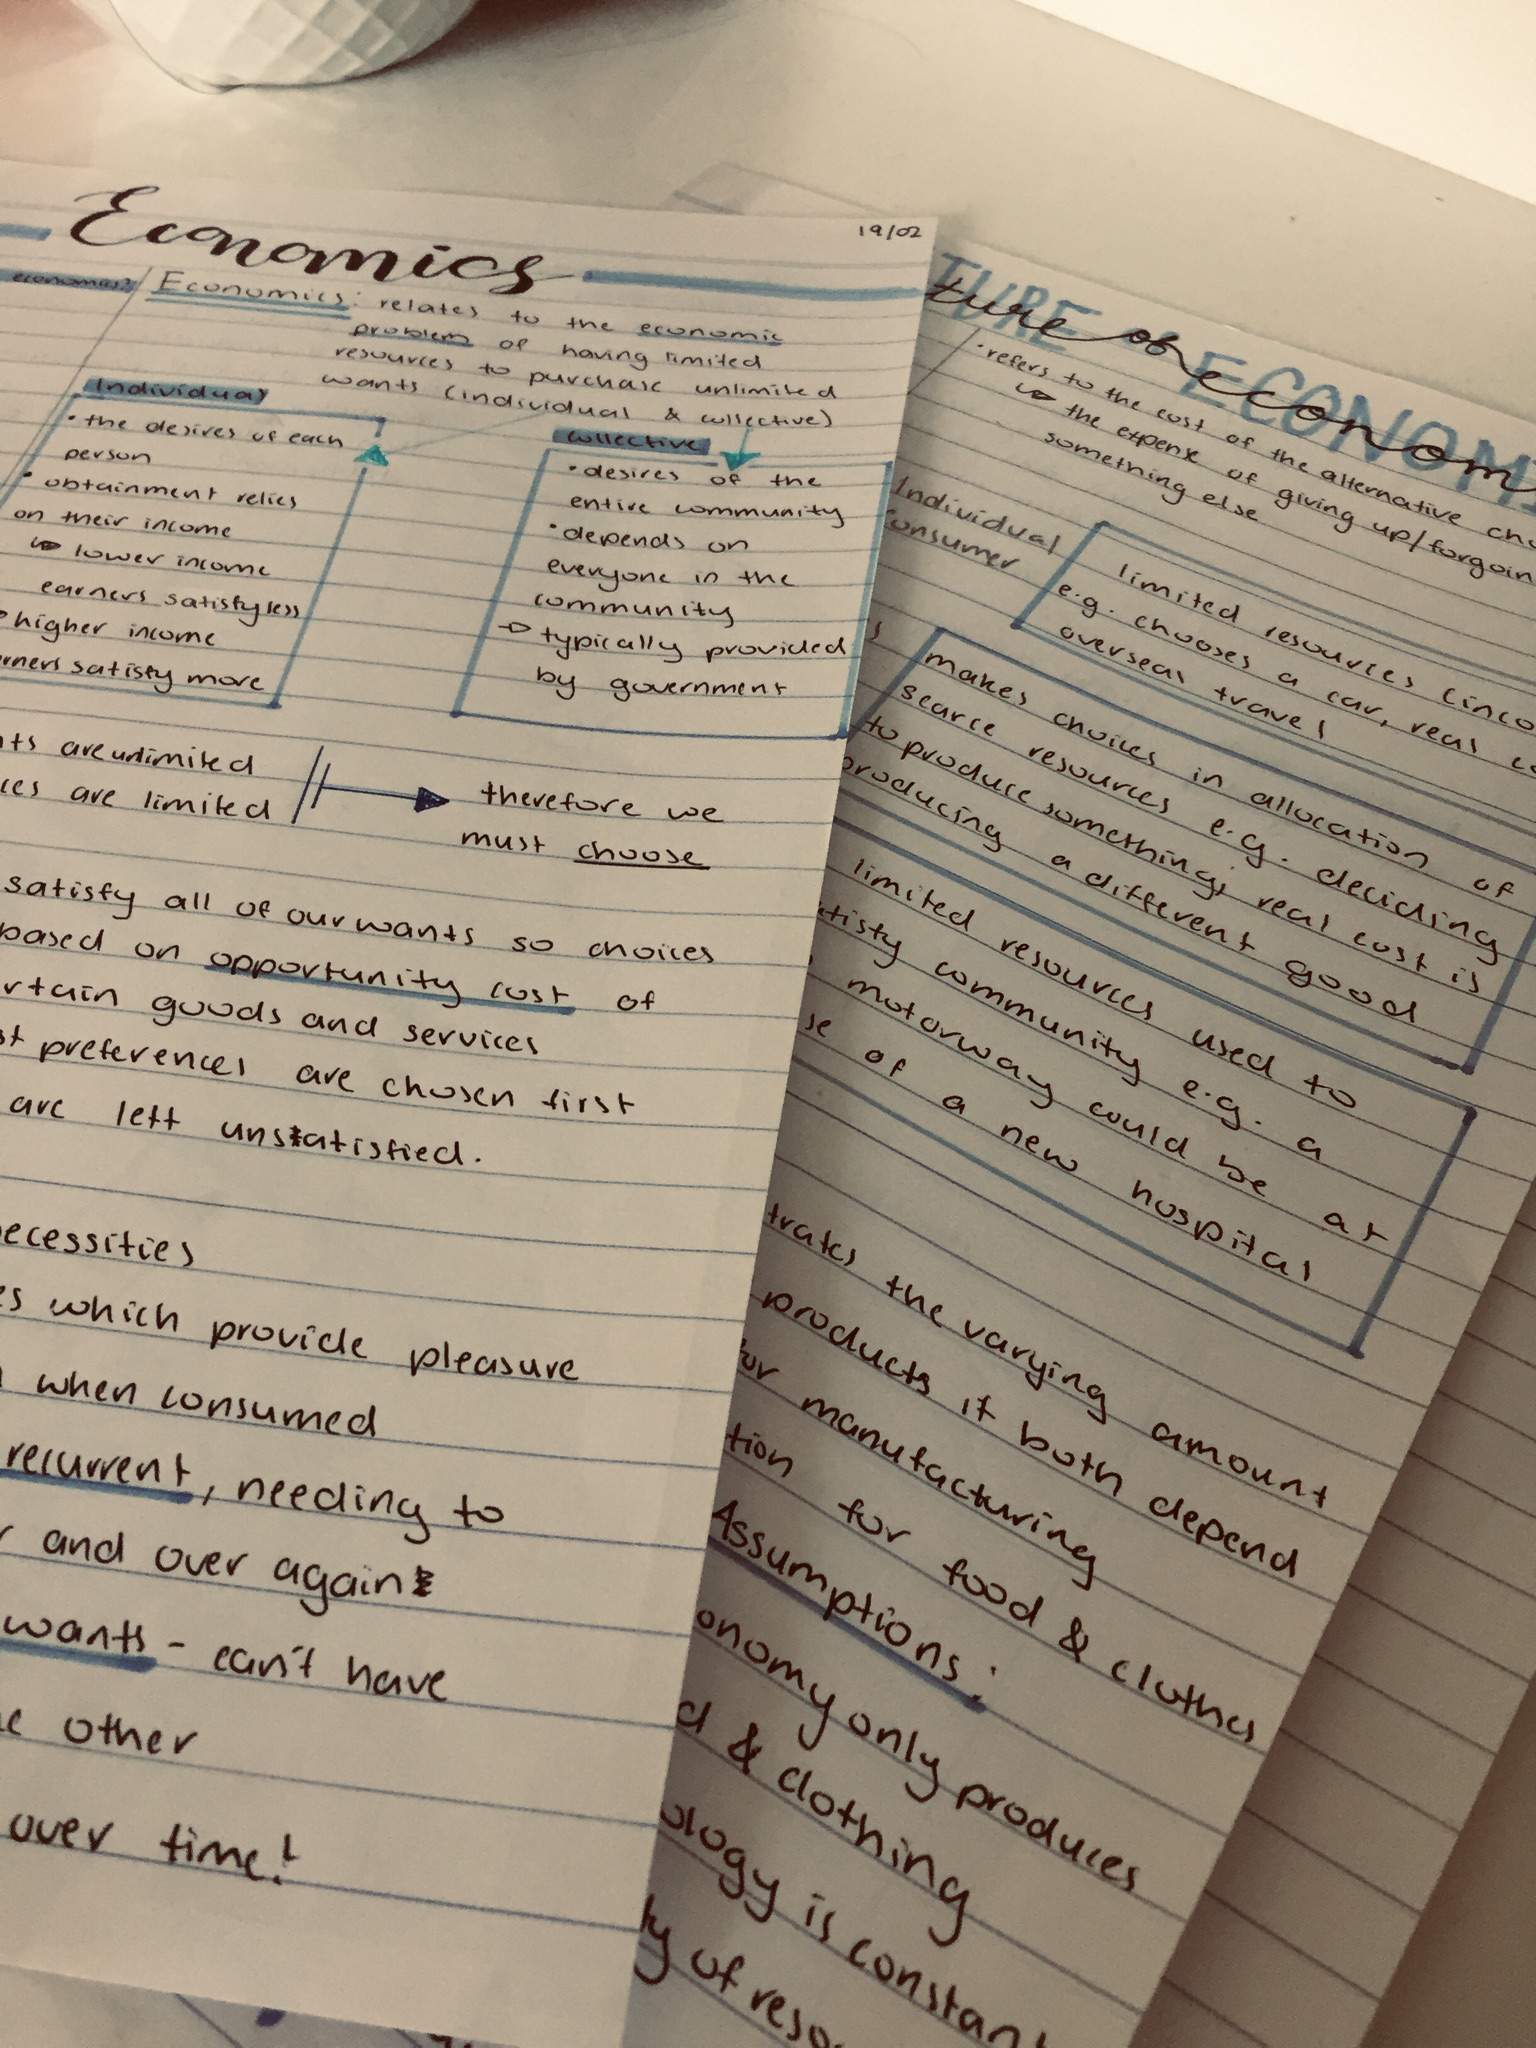 Economics
19/02
economics?
Economics: relates to the economic
problem of having limited
resources to purchase unlimited
wants (individual & collective)
Individual
• the desires of each
person
• obtainment relies
on their income
↳ lower income
earners satisfy less
higher income
earners satisfy more
collective
• desires of the
entire community
• depends on
everyone in the
community
→ typically provided
by government
are unlimited
are limited
therefore we
must choose
satisfy all of our wants so choices
based on opportunity cost of
goods and services
preferences are chosen first
are left unsatisfied.
which provide pleasure
when consumed
recurrent, needing to
and over again
wants - can't have
other
over time!
ECONOM
of econom
• refers to the cost of the alternative
↳ the expense of giving up/forgoin
something else
Individual
consumer
limited resources (inco
e.g. chooses a car, real
overseas travel
makes choices in allocation of
scarce resources e.g. deciding
to produce something, real cost is
producing a different good
limited resources used to
satisfy community e.g. a
motorway could be at
of a new hospital
the varying amount
products if both depend
for manufacturing
for food & clothes
Assumptions:
onomy only produces
& clothing
ology is constant
of reso